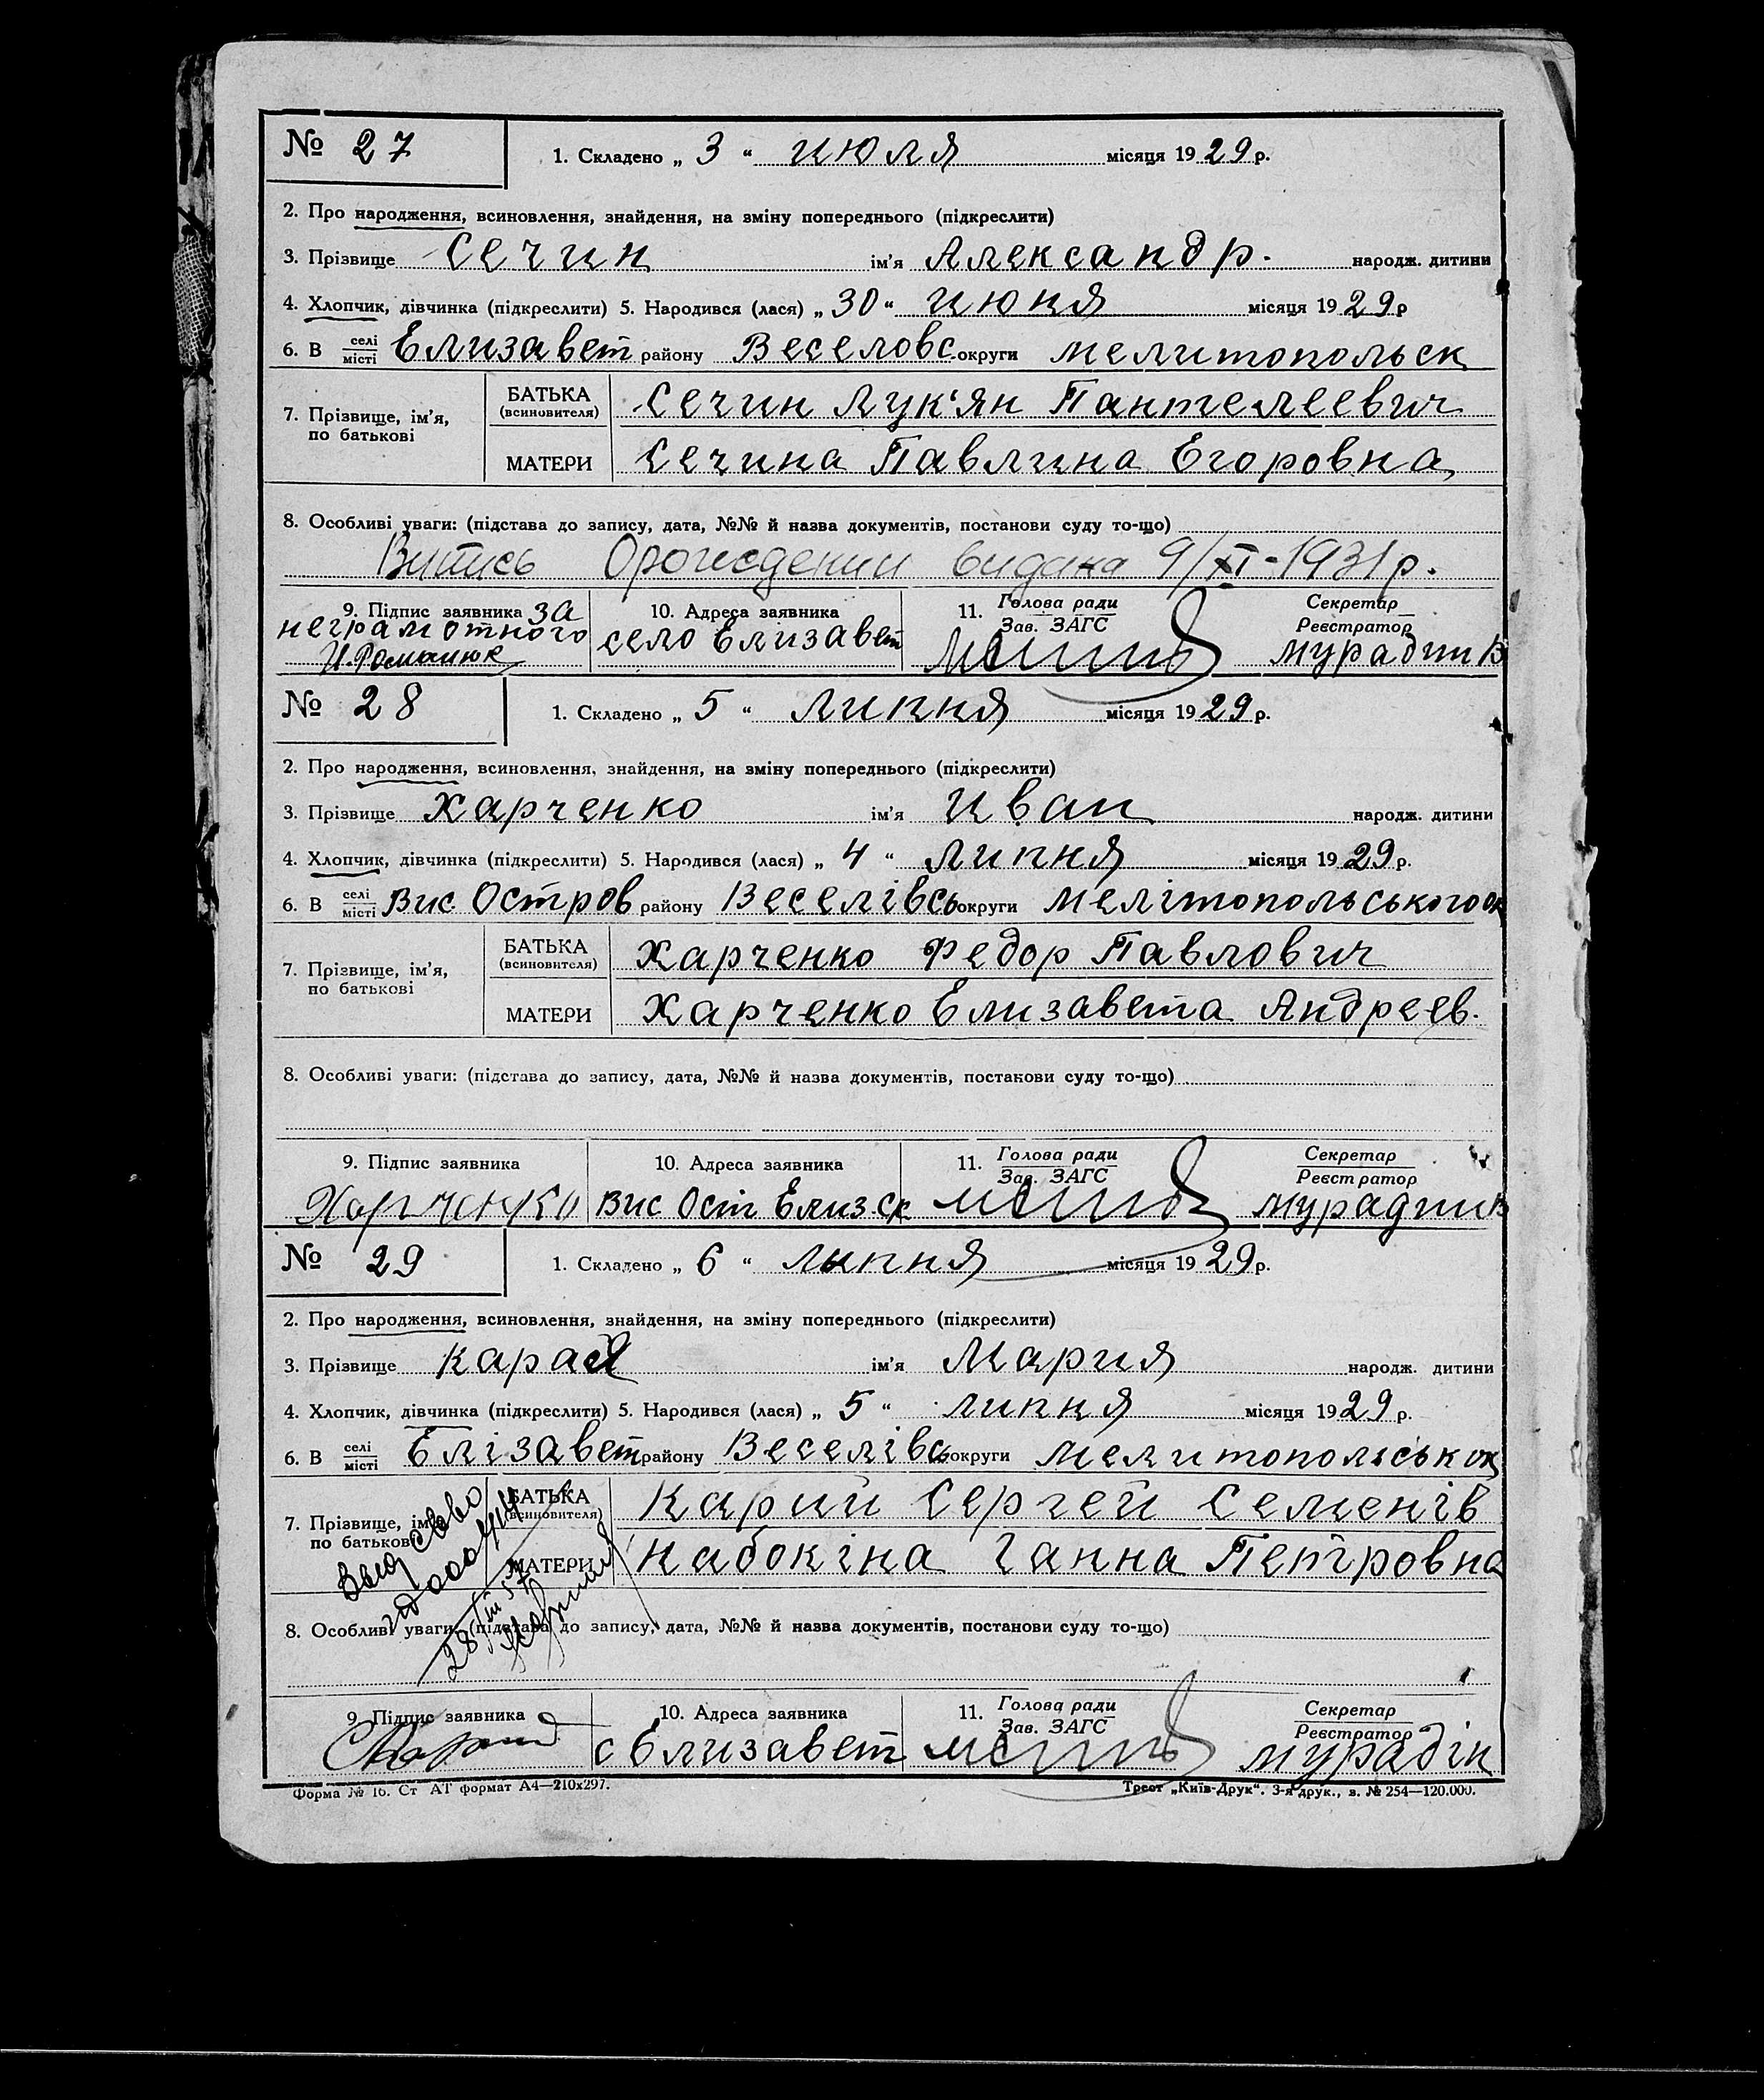 № 27
1. Складено „ 3 “ июля місяця 1929 р.
2. Про народження, всиновлення, знайдення, на зміну попереднього (підкреслити)
3. Прізвище Сечин ім’я Александр. народж. дитини
4. Хлопчик, дівчинка (підкреслити) 5. Народився (лася) „ 30 “ июня місяця 1929 р
6. В селі місті Елизавет району Веселовс. округи мелитопольск
7. Прізвище, ім’я, по батькові
БАТЬКА (всиновителя) Сечин Лук‘ян Пантелеевич
МАТЕРИ Сечина Павлина Егоровна
8. Особливі уваги: (підстава до запису, дата, №№ й назва документів, постанови суду то-що)
Витись Орождении видана 9/XI-1931 р.
9. Підпис заявника за 10. Адреса заявника 11. Голова ради Зав. ЗАГС Секретар Реєстратор
неграмотного село Елизавет
И. Романюк мурадин В
№ 28
1. Складено „ 5 “ липня місяця 1929 р.
2. Про народження, всиновлення, знайдення, на зміну попереднього (підкреслити)
3. Прізвище Харченко ім’я Иван народж. дитини
4. Хлопчик, дівчинка (підкреслити) 5. Народився (лася) „ 4 “ липня місяця 1929 р.
6. В селі місті Вис Остров району Веселівсь округи мелітопольського ок
7. Прізвище, ім’я, по батькові
БАТЬКА (всиновителя) Харченко Федор Павлович
МАТЕРИ Харченко Елизавета Андреев.
8. Особливі уваги: (підстава до запису, дата, №№ й назва документів, постанови суду то-що)
9. Підпис заявника 10. Адреса заявника 11. Голова ради Зав. ЗАГС Секретар Реєстратор
Харченко Вис Ост Елиз.ск мурадин В
№ 29
1. Складено „ 6 “ липня місяця 1929 р.
2. Про народження, всиновлення, знайдення, на зміну попереднього (підкреслити)
3. Прізвище ім’я Мария народж. дитини
4. Хлопчик, дівчинка (підкреслити) 5. Народився (лася) „ 5 “ липня місяця 1929 р.
6. В селі місті Елізавет району Веселівсь округи мелитопольськ ок
7. Прізвище, ім’я по батькові
БАТЬКА (всиновителя) Карий Сергей Семенів
МАТЕРИ Набокіна Ганна Петровна
8. Особливі уваги: (підстава до запису, дата, №№ й назва документів, постанови суду то-що)
9. Підпис заявника 10. Адреса заявника 11. Голова ради Зав. ЗАГС Секретар Реєстратор
с Елизавет мурадін
Форма № 16. Ст АТ формат А4—210x297. Трест „Київ-Друк“. 3-я друк., з. № 254—120.000.